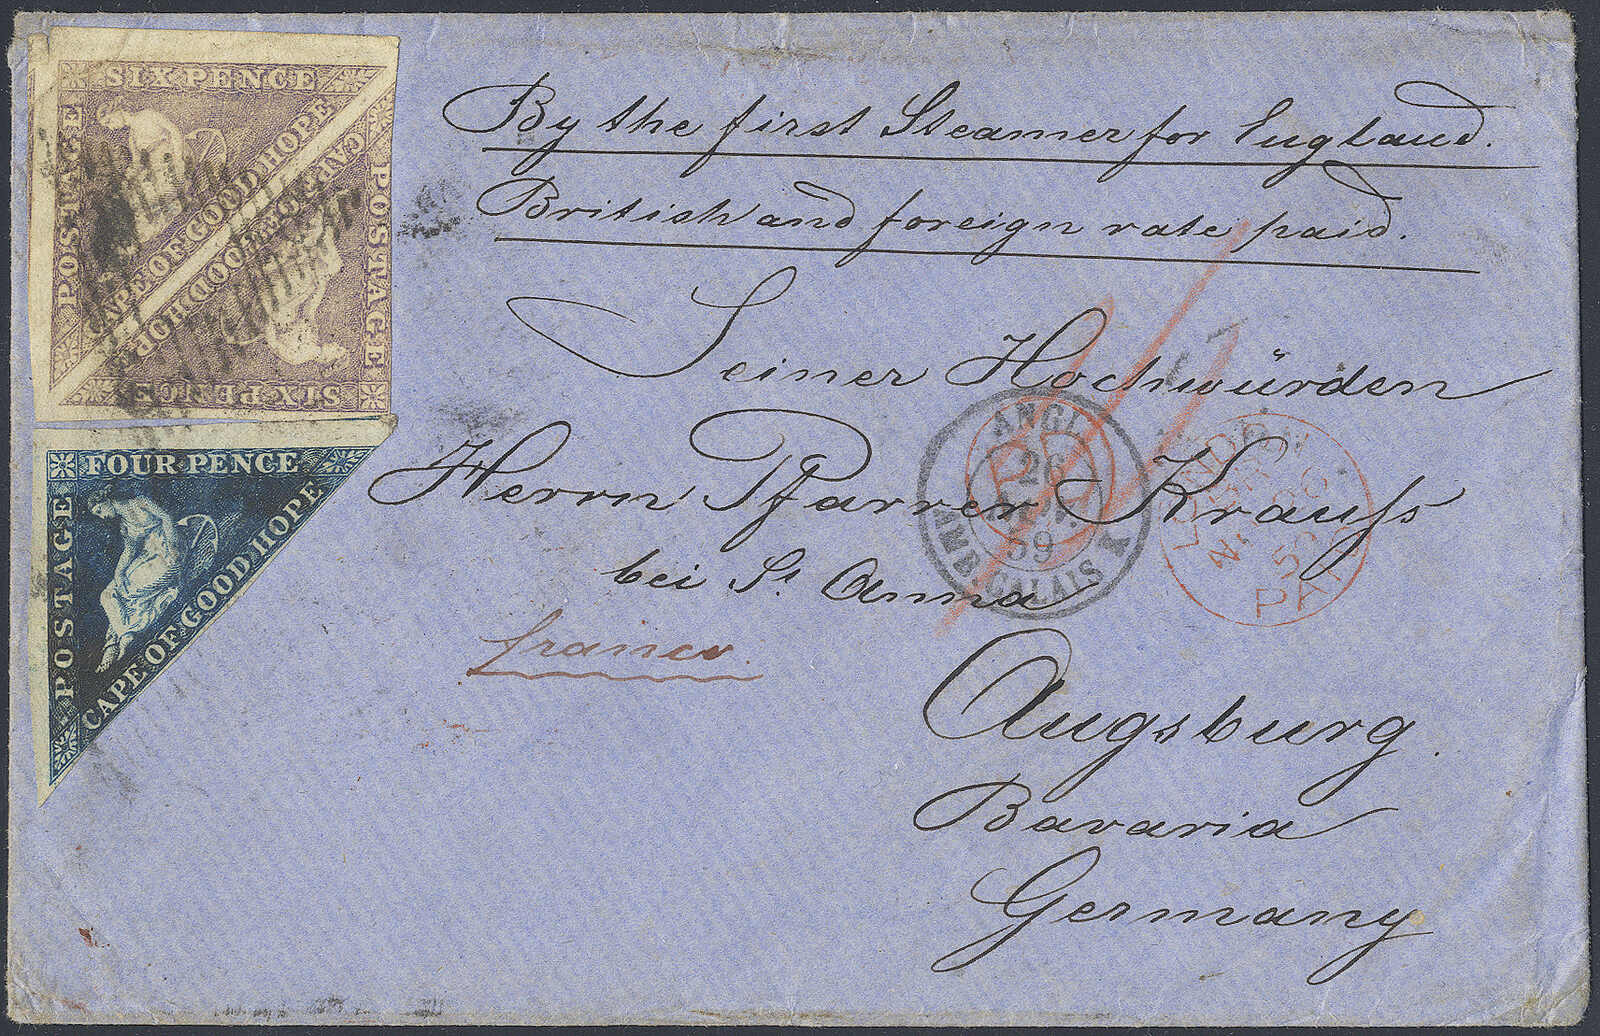 SIX PENCE
POSTAGE
CAPE OF GOOD HOPE
SIX PENCE
POSTAGE
CAPE OF GOOD HOPE
FOUR PENCE
POSTAGE
CAPE OF GOOD HOPE
By the first Steamer for England.
British and foreign rate paid.
Seiner Hochwürden
Herrn Pfarrer Krauſs
bei St. Anna
franco.
Augsburg.
Bavaria
Germany
ANGL.
26
59
AMB. CALAIS
LONDON
PAID